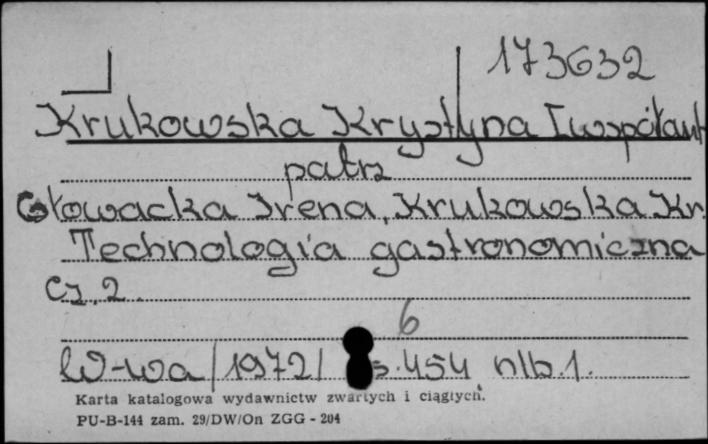 173632
Krukowska Krystyna [współaut
patrz
Głowacka Irena, Krukowska Kr.
Technologia gastronomiczna
Cz. 2.
6
W-wa /1972/ s. 454 nlb. 1.
Karta katalogowa wydawnictw zwartych i ciągłych.
PU-B-144 zam. 29/DW/On ZGG - 204